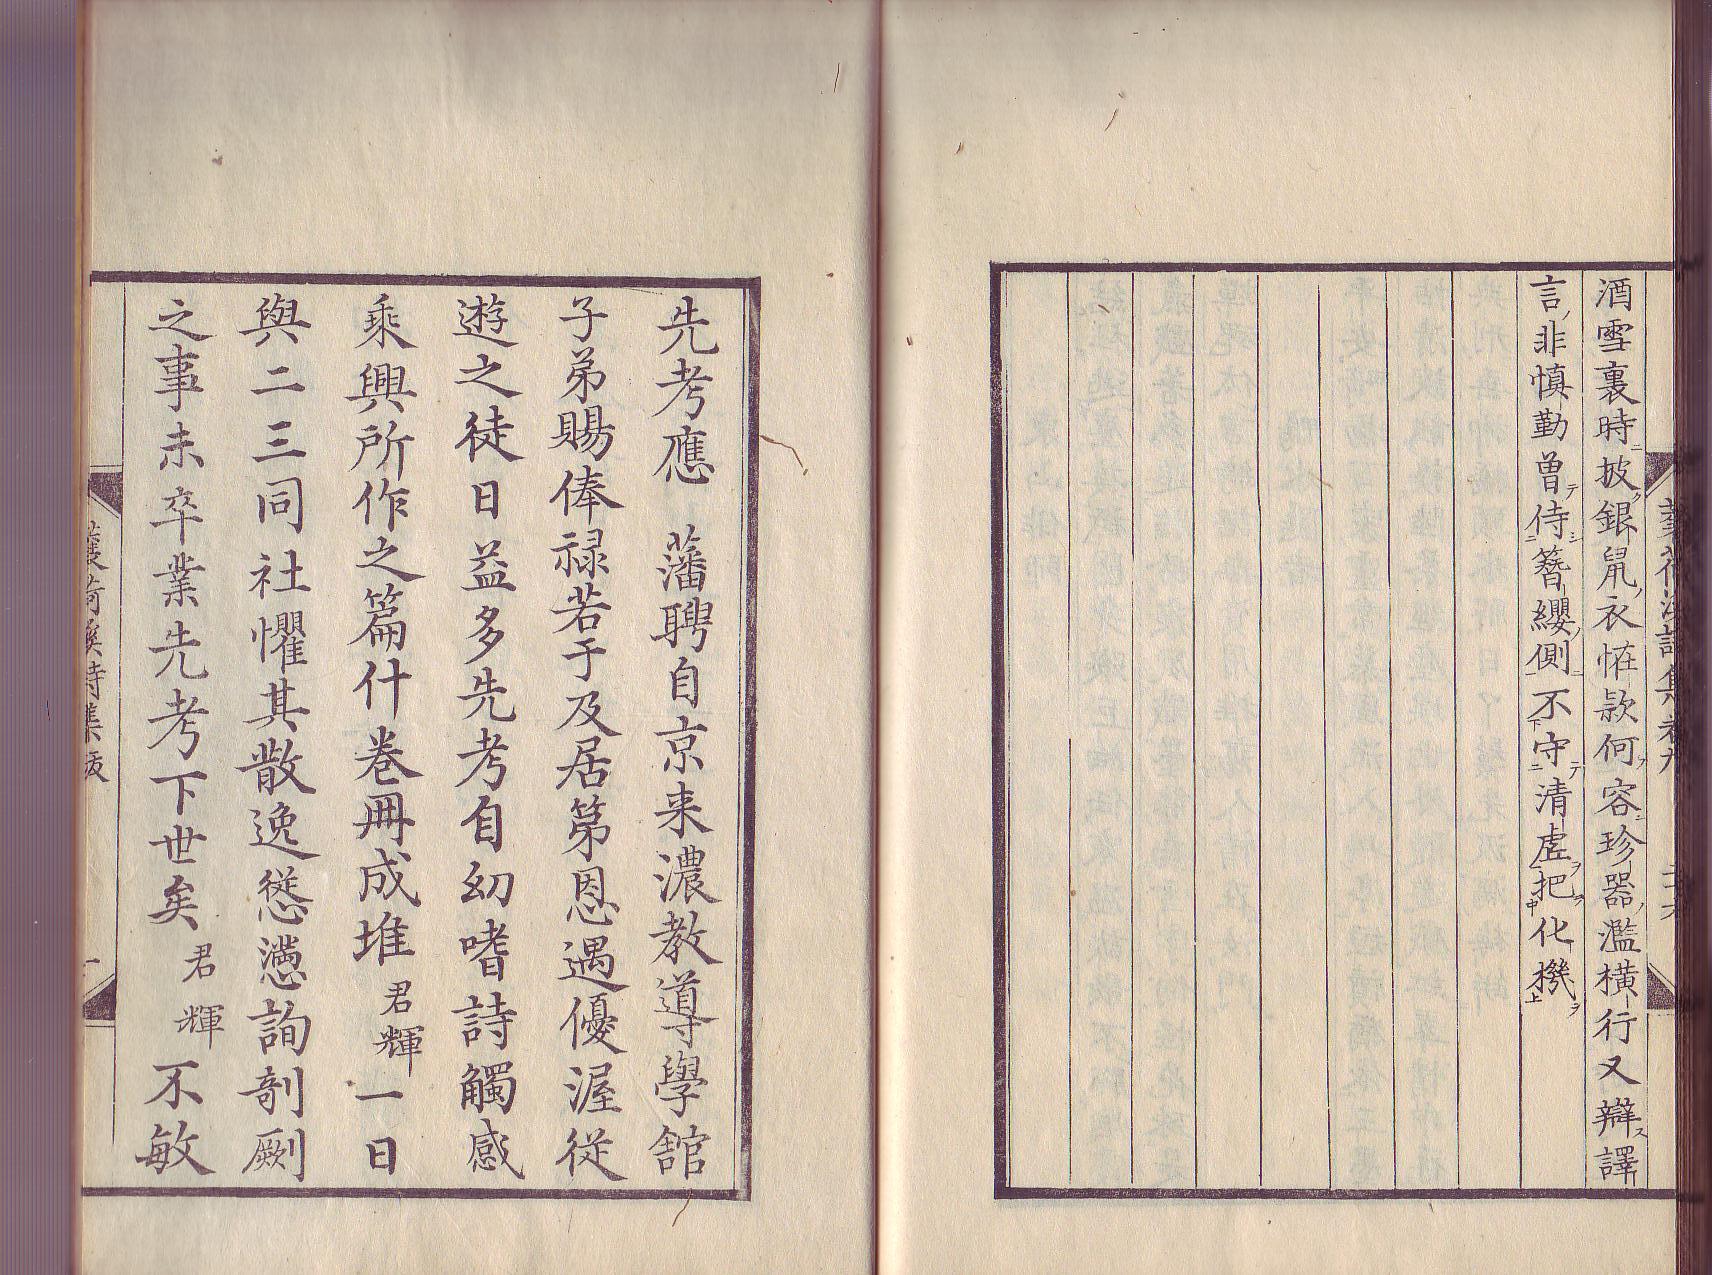 酒雪裏時披銀鼠衣恠欵何容珍器濫橫行又辯譯
言非慎勤曾侍簪纓側不守清虛把化機
先考應　藩聘自京来濃教導學舘
子弟賜俸禄若于及居第恩遇優渥從
遊之徒日益多先考自幼嗜詩觸感
乘興所作之篇什卷冊成堆君輝一日
與二三同社懼其散逸慫慂詢剞劂
之事未卒業先考下世矣君輝不敏